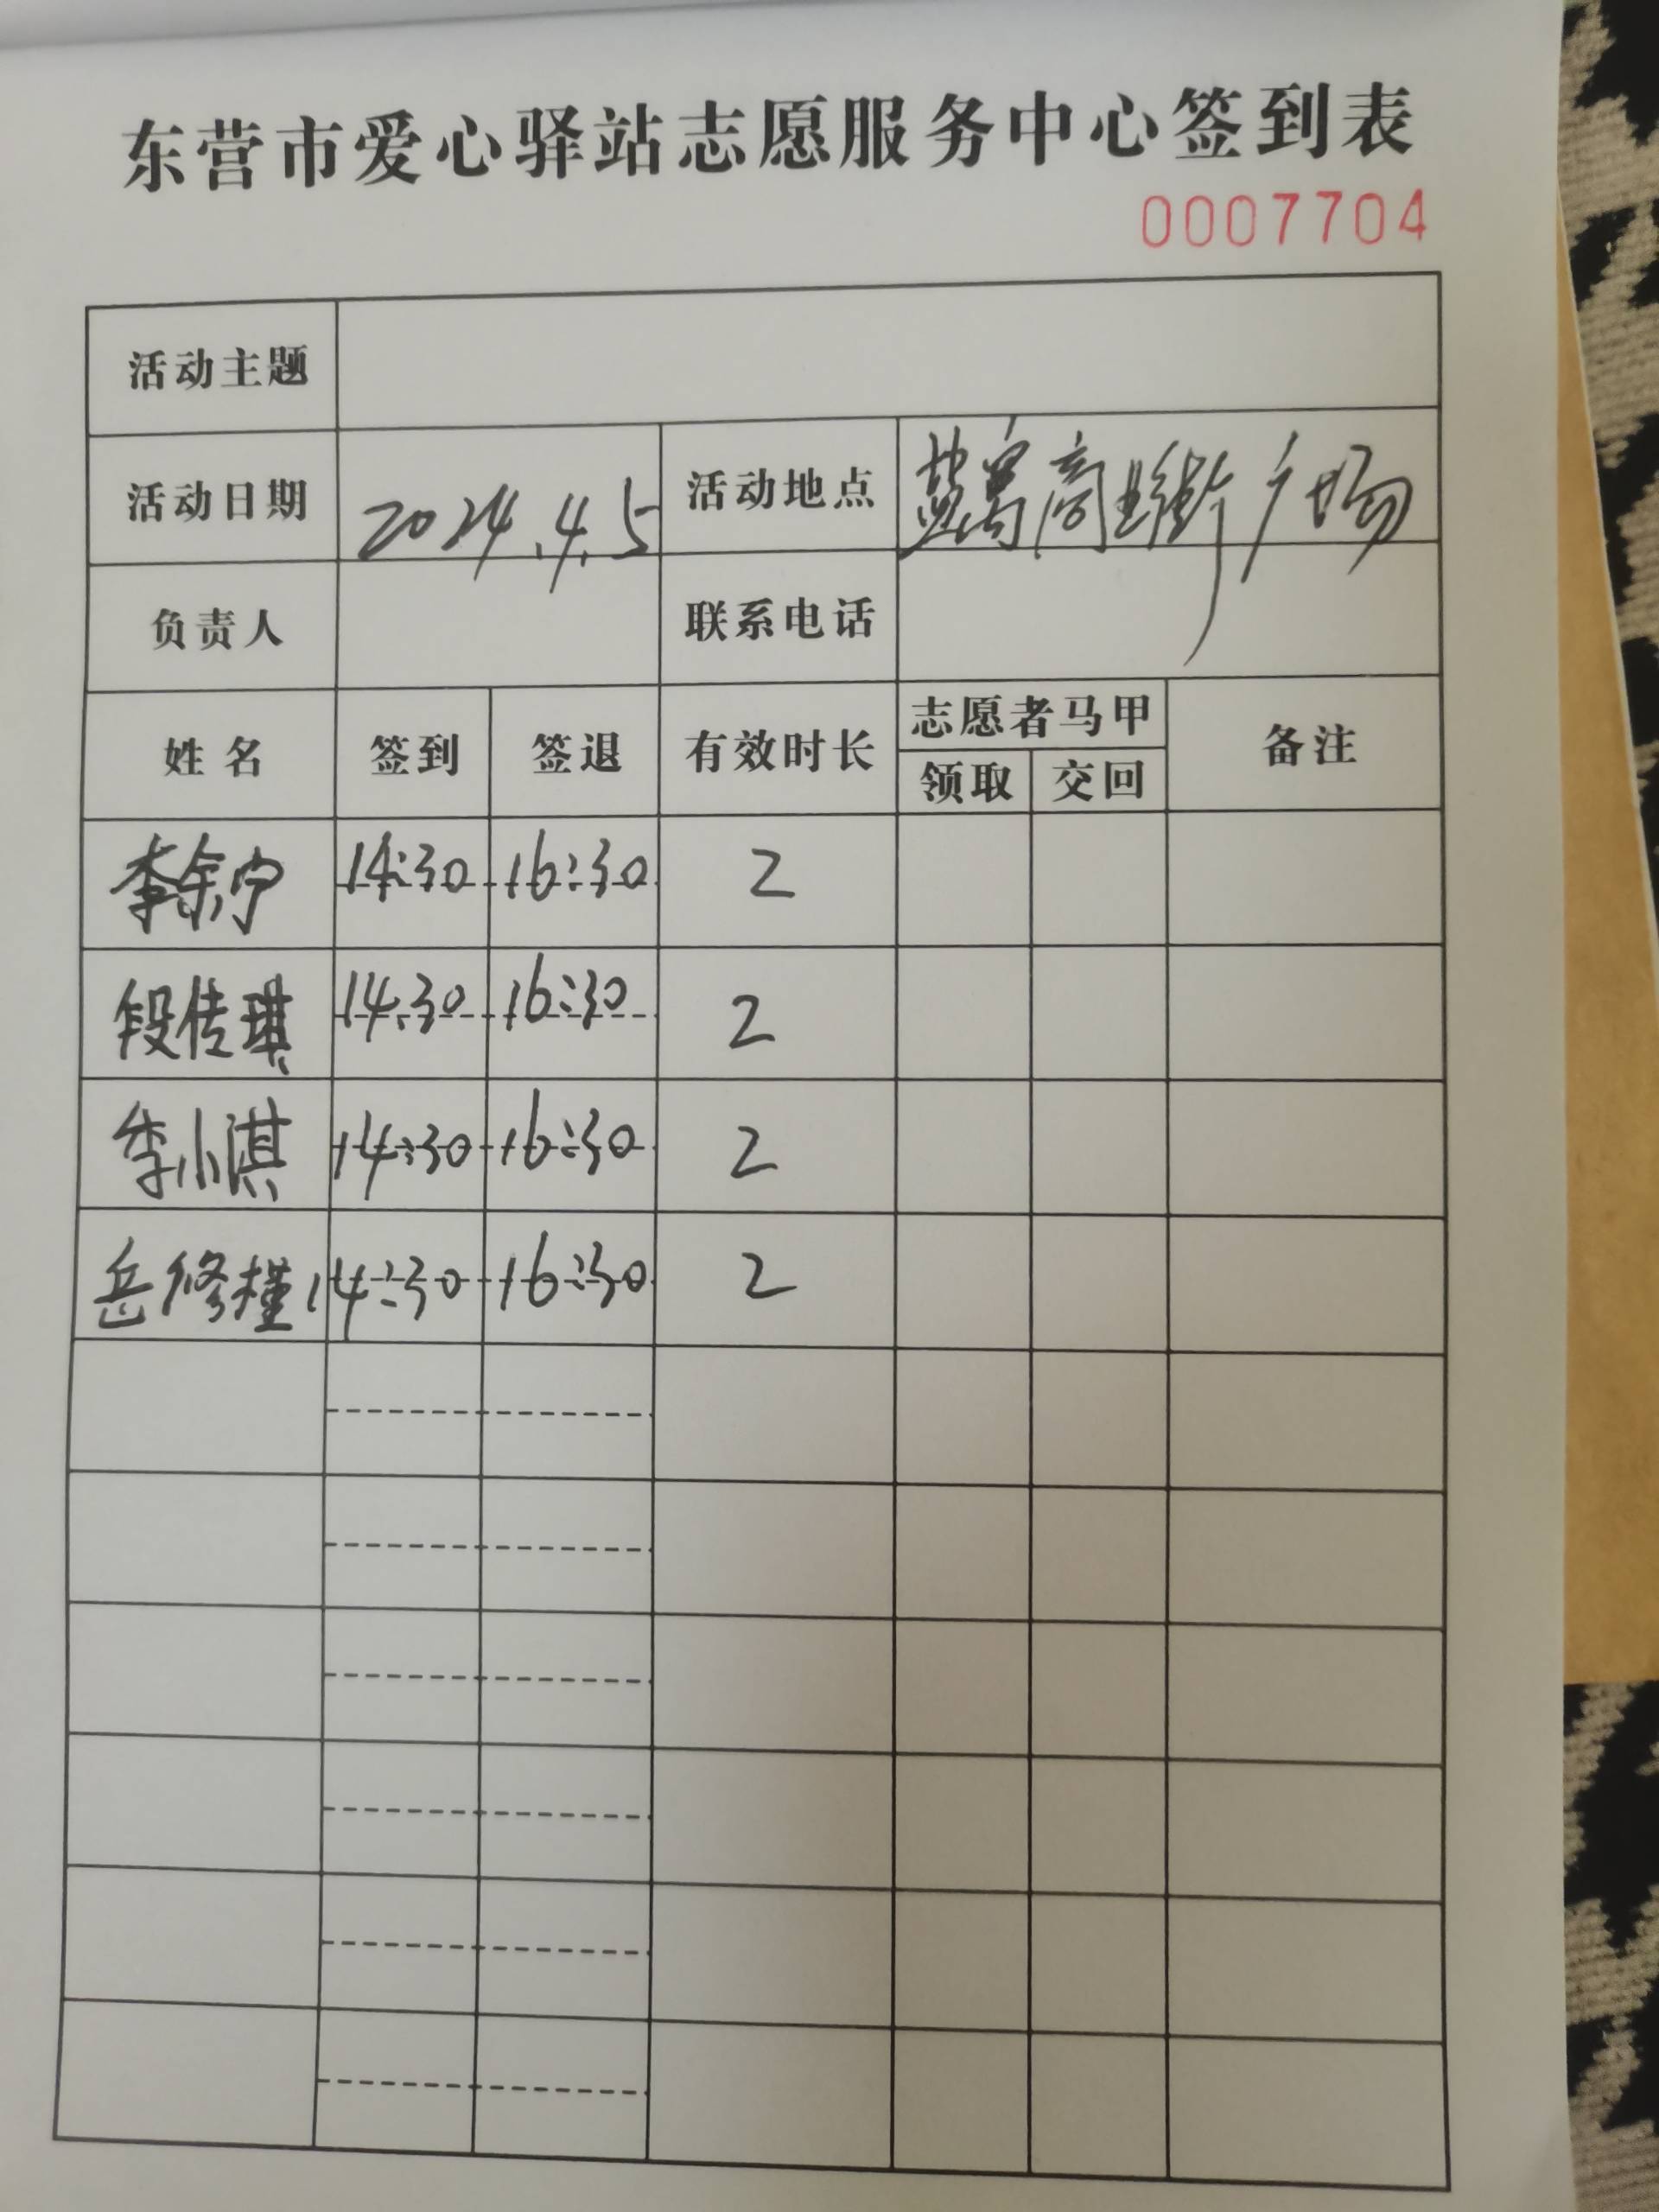 东营市爱心驿站志愿服务中心签到表
0007704
活动主题
活动日期 2024.4.5 活动地点 商业街广场
负责人 联系电话
姓名 签到 签退 有效时长 志愿者马甲 备注
领取 交回
李余宁 14:30 16:30 2
段传琪 14:30 16:30 2
李小淇 14:30 16:30 2
岳修槿 14:30 16:30 2